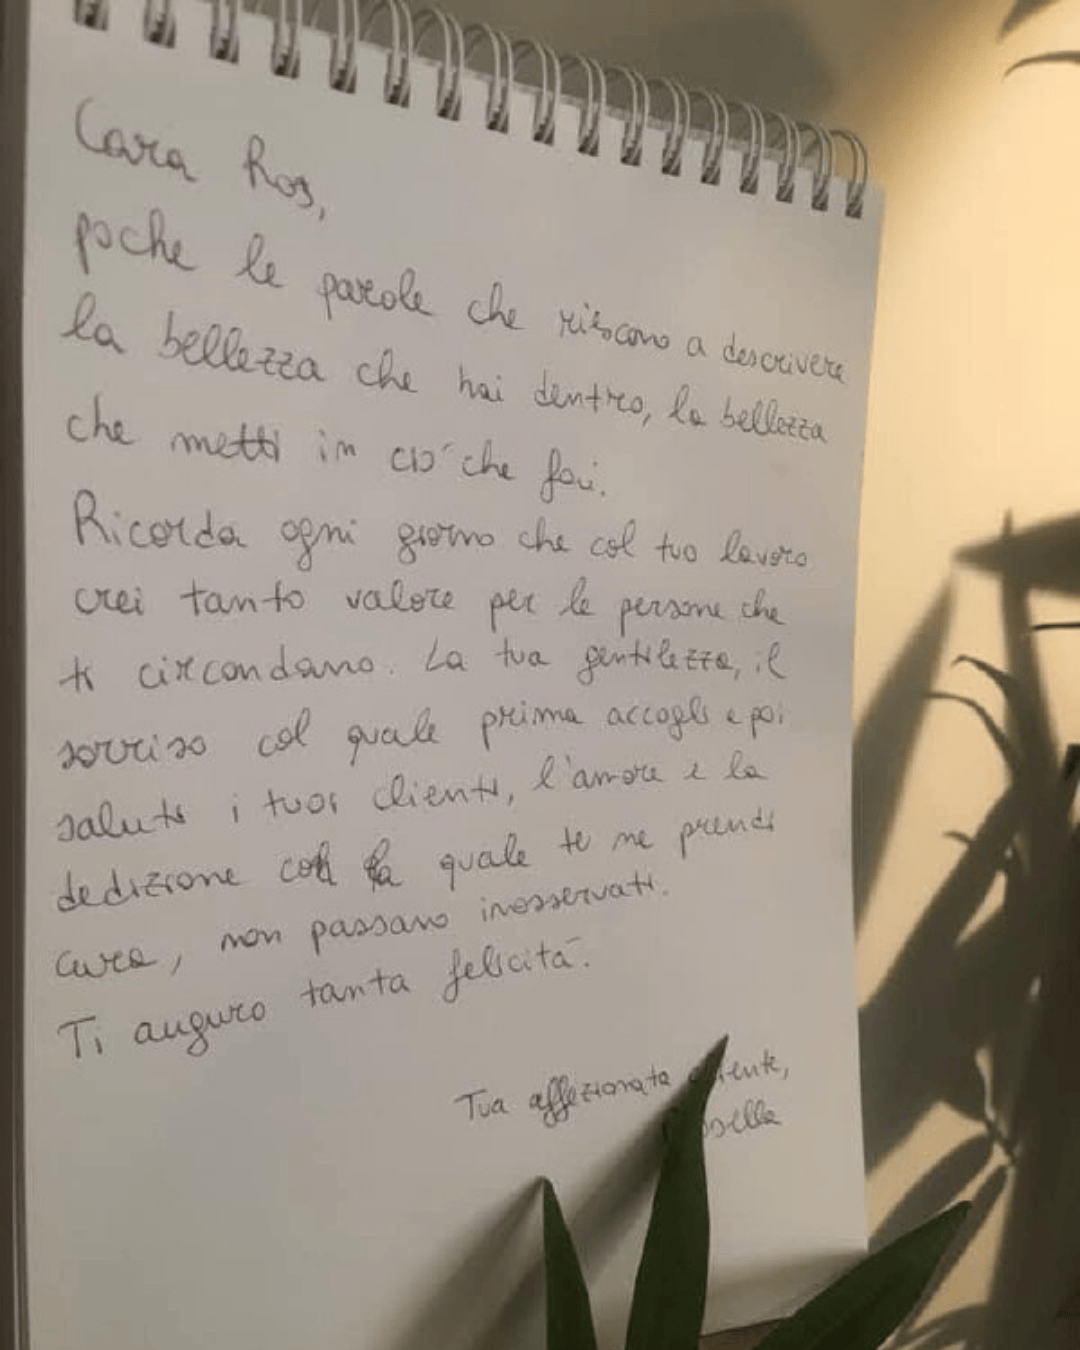 Cara Ros,
poche le parole che riescono a descrivere
la bellezza che hai dentro, la bellezza
che metti in ciò che fai.
Ricorda ogni giorno che col tuo lavoro
crei tanto valore per le persone che
ti circondano. La tua gentilezza, il
sorriso col quale prima accogli e poi
saluti i tuoi clienti, l'amore e la
dedizione con la quale te ne prendi
cura, non passano inosservati.
Ti auguro tanta felicità.
Tua affezionata